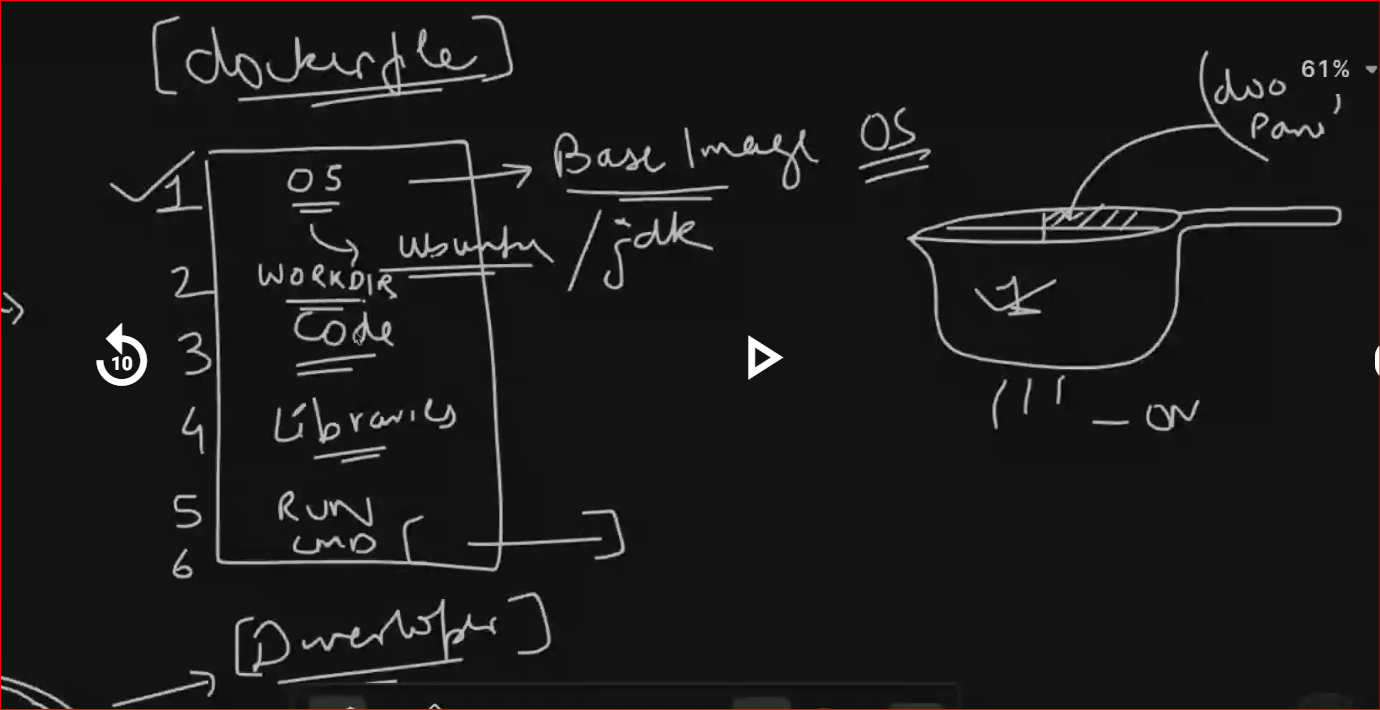 [dockerfile]
1 OS → Base Image OS
ubuntu / jdk
2 WORKDIR
3 Code
4 Libraries
5 RUN
6 CMD [ ]
[Developer]
61%
1
ON
10